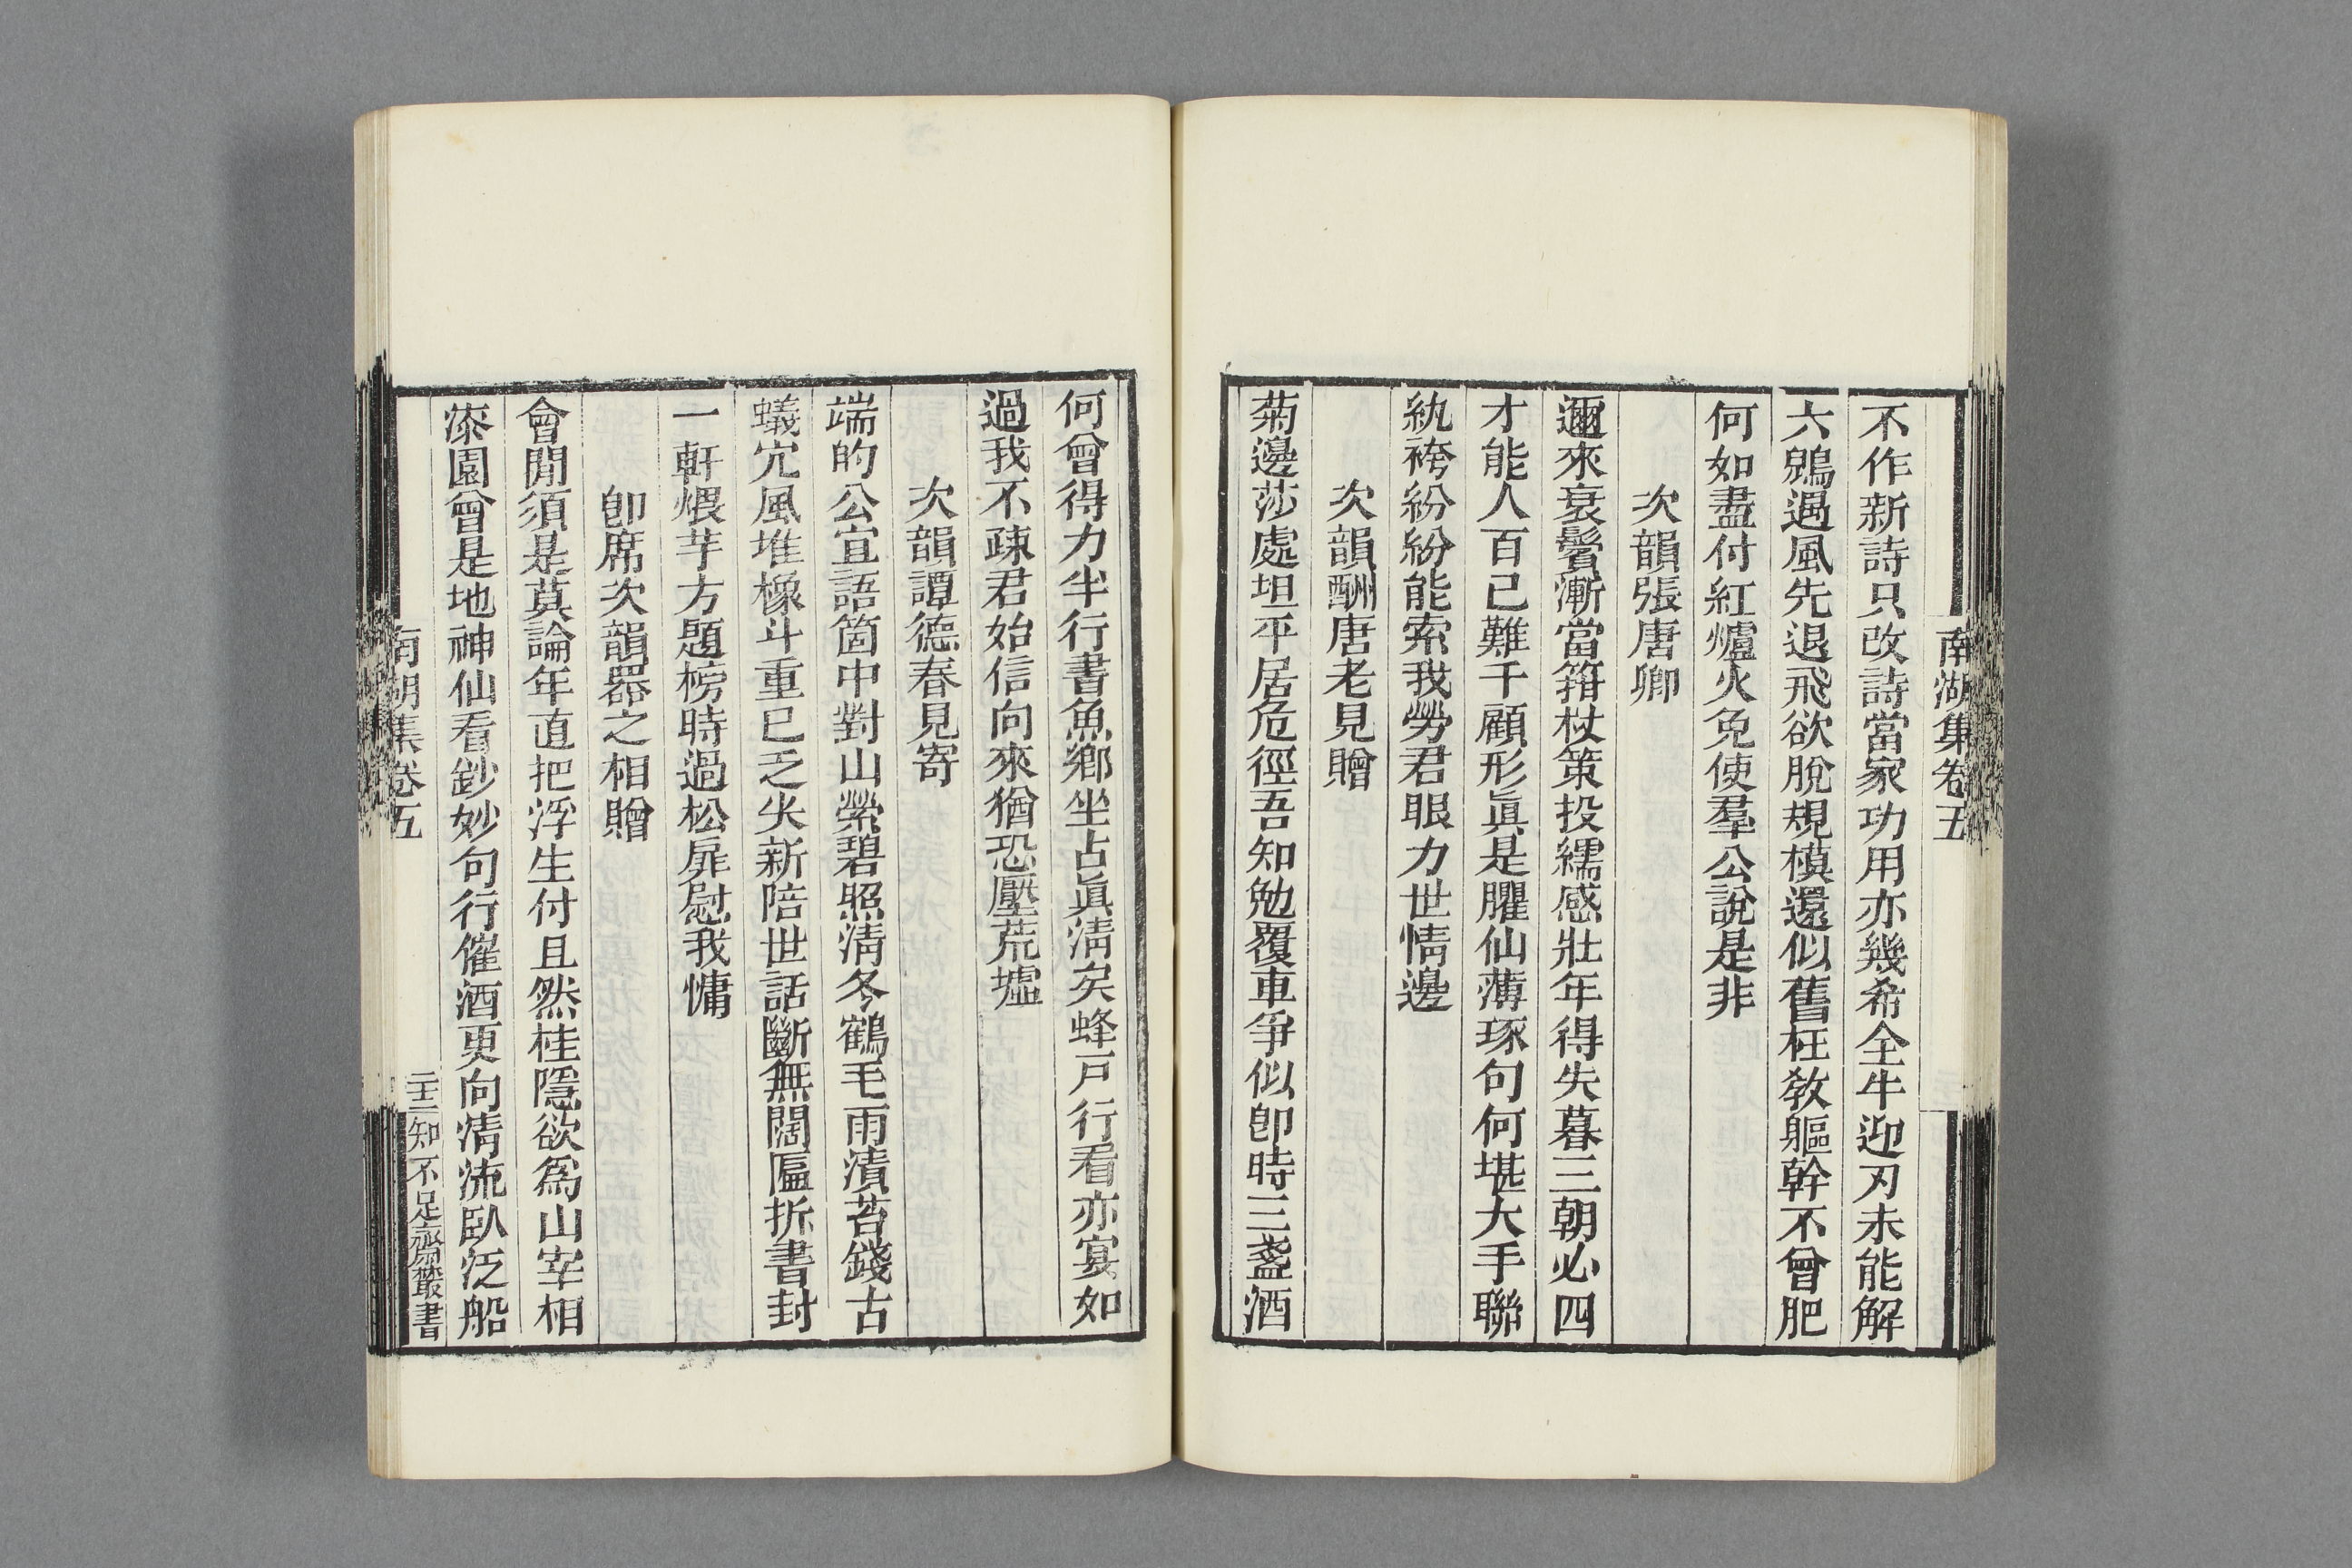 南湖集卷五
不作新詩只改詩當家功用亦幾希全牛迎刃未能解
六鷁過風先退飛欲脫規模還似舊枉敎軀幹不曾肥
何如盡付紅爐火免使羣公說是非
次韻張唐卿
邇來衰鬢漸當簪杖策投繻感壯年得失暮三朝必四
才能人百己難千顧形眞是臞仙薄琢句何堪大手聯
紈袴紛紛能索我勞君眼力世情邊
次韻酬唐老見贈
菊邊莎處坦平居危徑吾知勉覆車爭似卽時三盞酒
何曾得力半行書魚鄕坐占眞淸矣蜂戸行看亦宴如
過我不疎君始信向來猶恐壓荒墟
次韻譚德春見寄
端的公宜語箇中對山縈碧照淸冬鶴毛雨漬苔錢古
蟻穴風堆橡斗重已乏尖新陪世話斷無闊匾折書封
一軒煨芋方題榜時過松扉慰我慵
卽席次韻器之相贈
會閒須是莫論年直把浮生付且然桂隱欲爲山宰相
漆園曾是地神仙看鈔妙句行催酒更向淸流臥泛船
南湖集卷五
二十三
知不足齋叢書